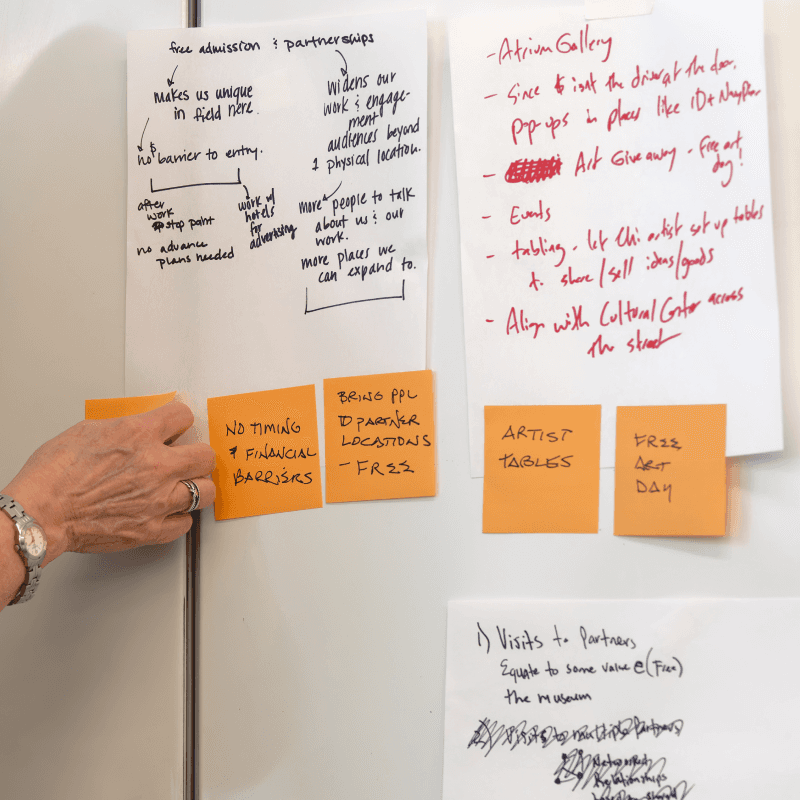 free admission & partnerships
makes us unique
in field here.
no $ barrier to entry.
after
work
stop point
no advance
plans needed
work w/
hotels
for
advertising
widens our
work & engage-
ment
audiences beyond
1 physical location.
more people to talk
about us & our
work.
more places we
can expand to.
- Atrium Gallery
- Since $ isn't the driver at the door,
pop-ups in places like
- Art Giveaway - Free art
day!
- Events
- tabling - let Chi artist set up tables
to share/sell ideas/goods
- Align with Cultural Center across
the street
NO TIMING
& FINANCIAL
BARRIERS
BRING PPL
TO PARTNER
LOCATIONS
- FREE
ARTIST
TABLES
FREE
ART
DAY
1) Visits to Partners
Equate to some value @ (Free)
the museum
Visits to multiple partners
Networked
Relationships